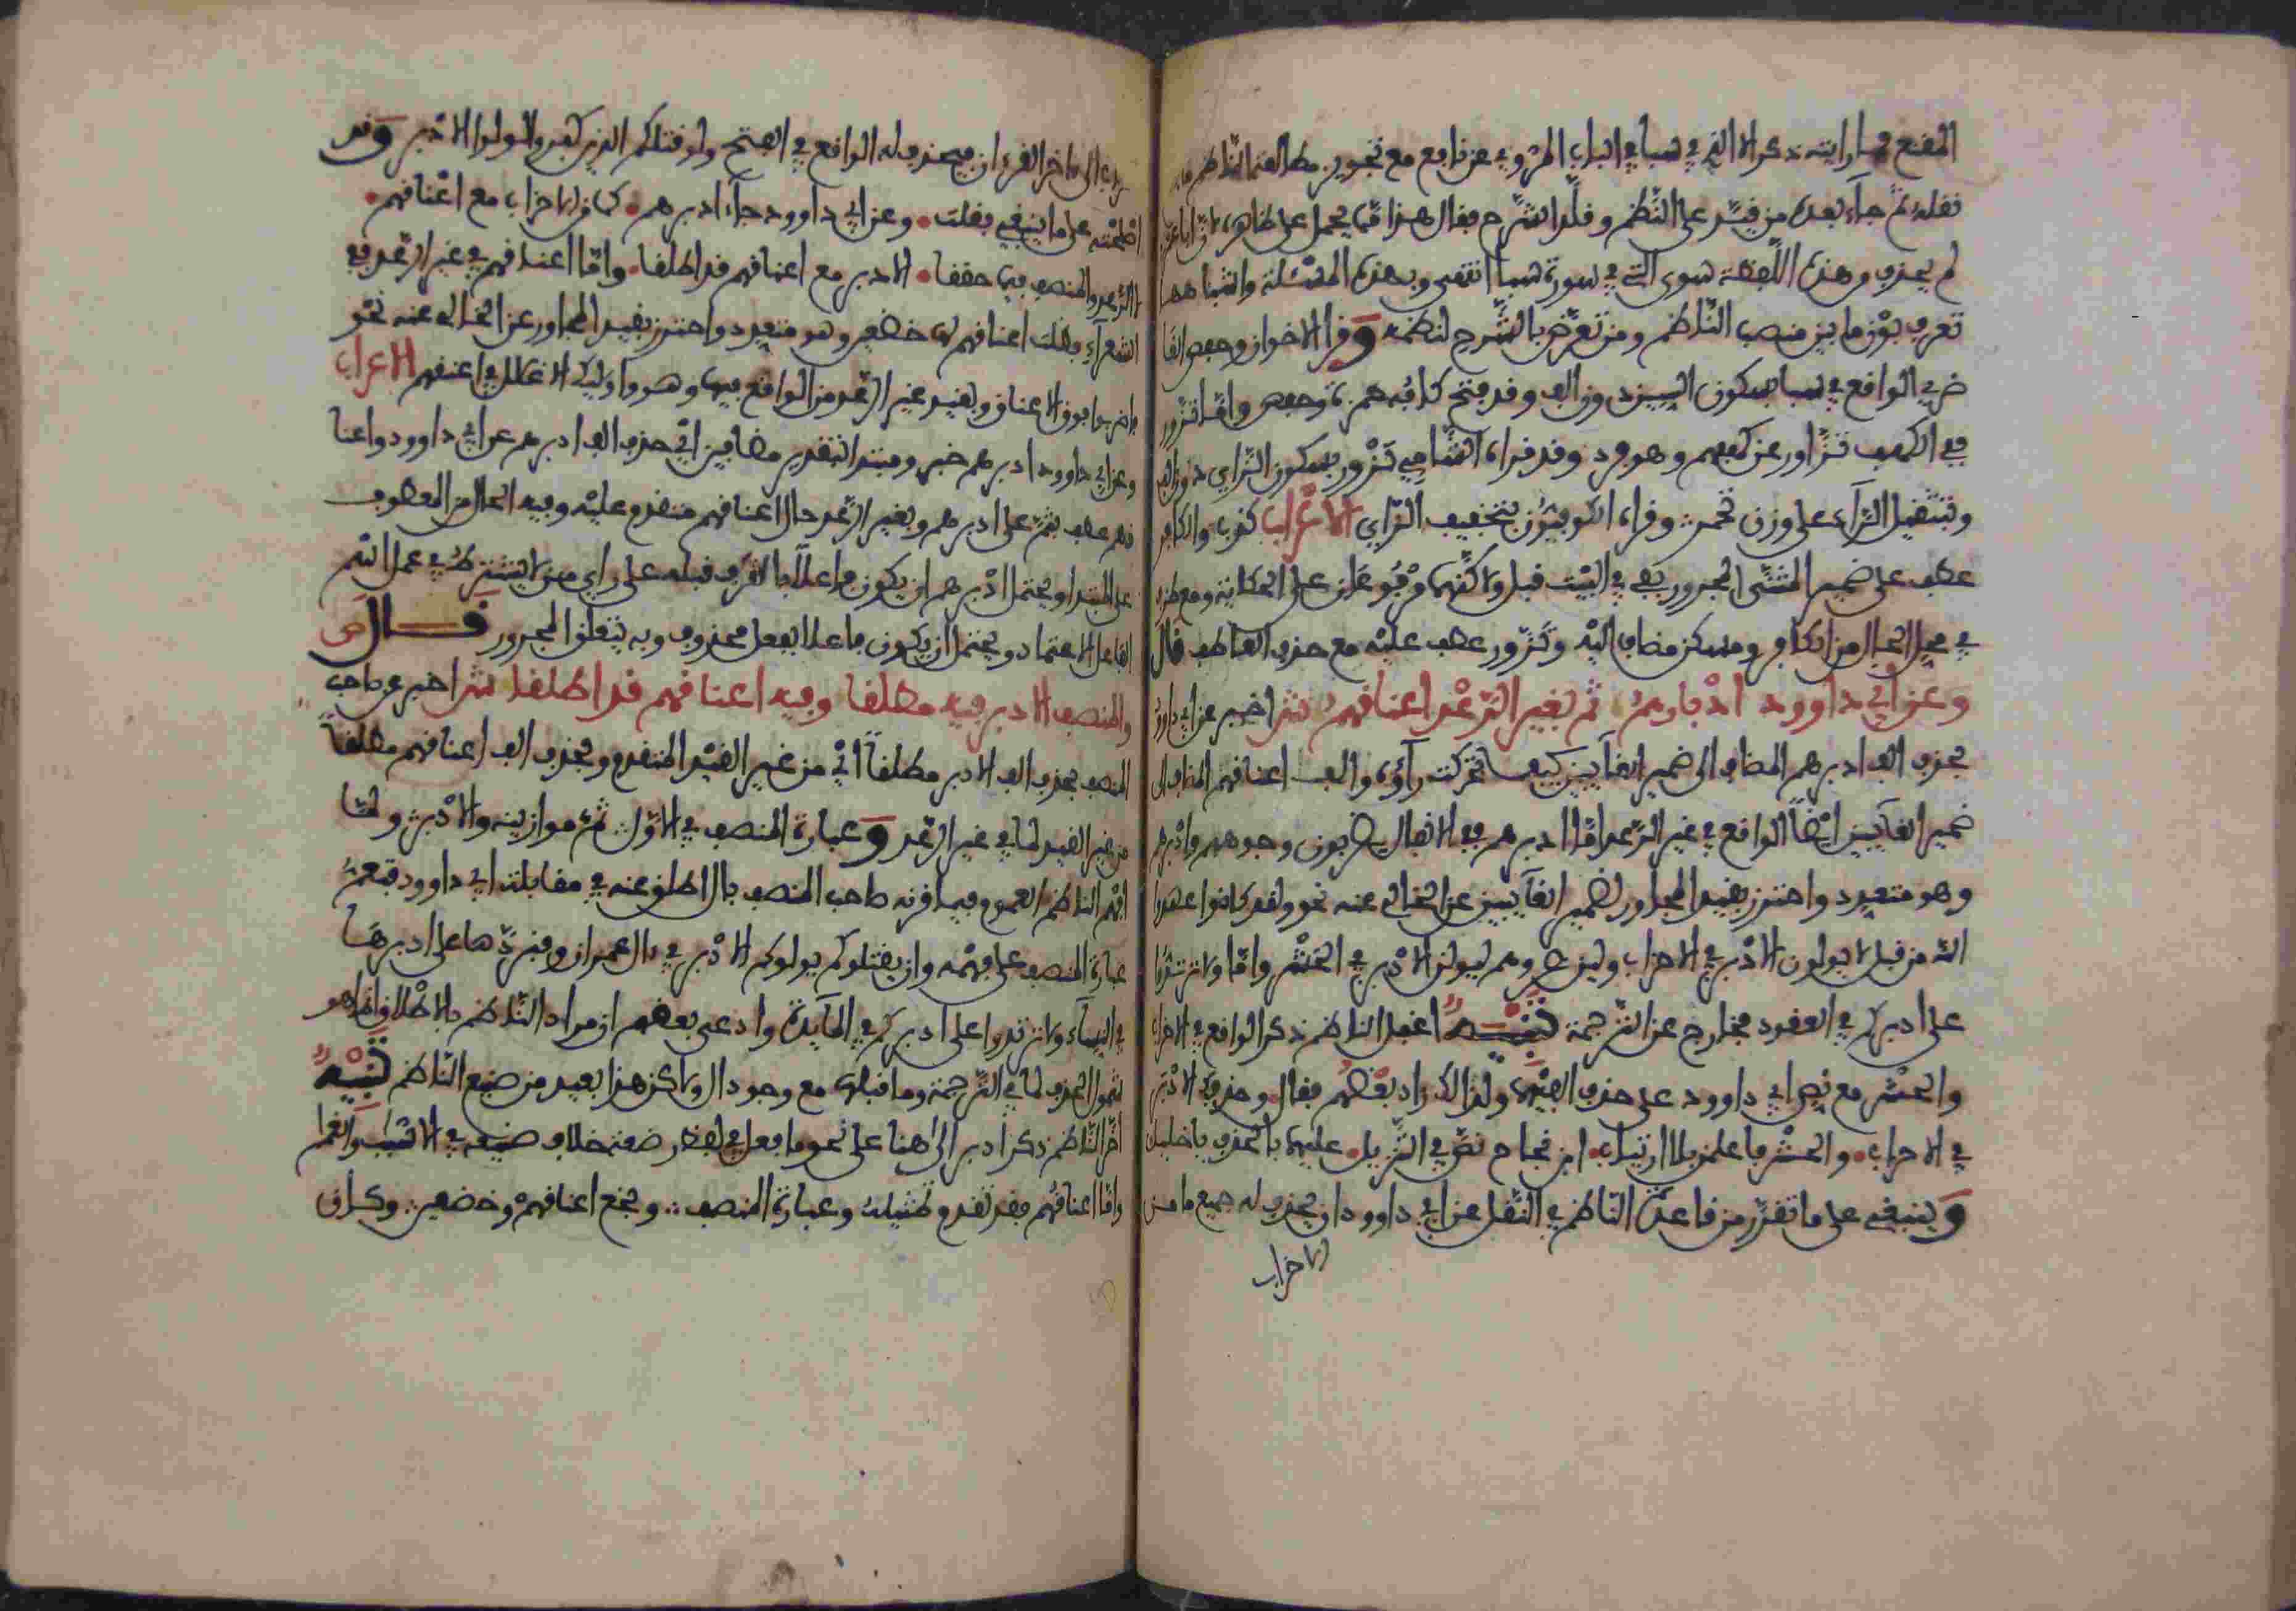 المقنع فما رايته ذكر الا التي في سبا في الباب المروي عن نافع مع تجويز مطالعة الناظم ما
نقله ثم جاء بعده من فسر على النظم وقلد الشرح فقال هذا مما يحمل على ظاهره
لم يحذف وهذه اللفظة سوى التي في سورة سبا انتهى وبهذه المسئلة واشباهها
تعرف بون ما بين منصب الناظم ومن تعرض بالشرح لنظمه وقرا الاخوان وحفص
في الواقع في سبا بسكون السين دون الف وقد فتح كافه حمزة وحفص واما تزور
ففي الكهف تزاور عن كهفهم وهو فرد وقد قراه الشامي تزور بسكون الزاي دون الف
وبتثقيل الراء على وزن تحمر وقراه الكوفيون بتخفيف الزاي الاعراب كذب والكافر
عطف على ضمير المثنى المجرور بفي في البيت قبل ولاكنهما مرفوعان على الحكاية ومع
في محل الحال من الكافر ومسكن مضاف اليه وتزور عطف عليه مع حذف العاطف قال
وعن ابي داوود ادبارهم ثم بغير الرعد اعناقهم ش اخبر عن ابي داوود
بحذف الف ادبرهم المضاف الى ضمير الغآيبين كيف تحركت رآؤه والف اعناقهم المضاف الى
ضمير الغآيبين ايضا الواقع في غير الرعد اما ادبرهم ففي الانفال يضربون وجوههم وادبرهم
وهو متعدد واحترز بقيد المجاور لضمير الغآيبين عن الخالي عنه نحو ولقد كانوا عهدوا
الله من قبل لا يولون الادبر في الاحزاب ولين نصروهم ليولن الادبر في الحشر واما ولا ترتدوا
على ادبركم في العقود فخارج عن الترجمة تنبيه اغفل الناظم ذكر الواقع في الاحزاب
والحشر مع نص ابي داوود على حذف الفيهما ولذالك زاد بعضهم فقال وحذف الادبر
في الاحزاب والحشر فاعلمن بلا ارتياب ابن نجاح نص في التنزيل عليهما بالحذف يا خليل
وينبغي على ما تقرر من قاعدة الناظم في النقل عن ابي داوود ان يحذف له جميع ما من
الاحزاب
الى ما خر القرءان فيحذف له الواقع في الفتح ولو قتلكم الذين كفروا لولوا الادبر وقد
اصلحته على ما ينبغي فقلت وعن ابي داوود جاء ادبرهم كما في الاحزاب مع اعناقهم
الرعد والمنصف فيها حققا الادبر مع اعناقهم قد اطلقا واما اعناقهم في غير الرعد ففي
الشعرآء فظلت اعناقهم لها خضعين وهو متعدد واحترز بقيد المجاور عن الخالي عنه نحو
فاضربوا فوق الاعناق وبقيد غير الرعد من الواقع فيها وهو واوليك الاغلل في اعنقهم الاعراب
وعن ابي داوود ادبرهم خبر ومبتدا بتقدير مضافين اي حذف الف ادبرهم عن ابي داوود واعنا
قهم عطف بثم على ادبرهم وبغير الرعد حال اعناقهم متقدم عليه وفيه الحال من المعطوف
على المبتدا ويحتمل ادبرهم ان يكون فاعلا بالظرف قبله على راي من لا يشترط في عمل اسم
الفاعل الاعتماد ويحتمل ان يكون فاعلا بفعل محذوف وبه يتعلق المجرور قال ص
والمنصف الادبر فيه مطلقا وفيه اعناقهم قد اطلقا ش اخبر عن صاحب
المنصف بحذف الف الادبر مطلقا اي من غير القيد المتقدم وبحذف الف اعناقهم مطلقا
من غير القيد لما في غير الرعد وعبارة المنصف في الاول ثم موازينه والادبر ولما
افهم الناظم العموم فيما اقرنه صاحب المنصف بال اطلق عنه في مقابلة ابي داوود فتعم
عبارة المنصف على فهمه وان يقتلوكم يولوكم الادبر في ءال عمران وفنردها على ادبرها
في النسآء ولا ترتدوا على ادبركم في المآيدة وادعى بعضهم ان مراد الناظم بالاطلاق انما هو
شمول الحذف لما في الترجمة وما قبلها مع وجود ال ولاكن هذا بعيد من صنيع الناظم تنبيه
اخر الناظم ذكر ادبر الى هنا على نحو ما فعل في لفظ رضعة خلاف صنيعه في الاسبب والغمم
واما اعناقهم فقد تقدم وتمثيله وعبارة المنصف ؞ وبخع اعناقهم وخضعين ؞ وكذا في